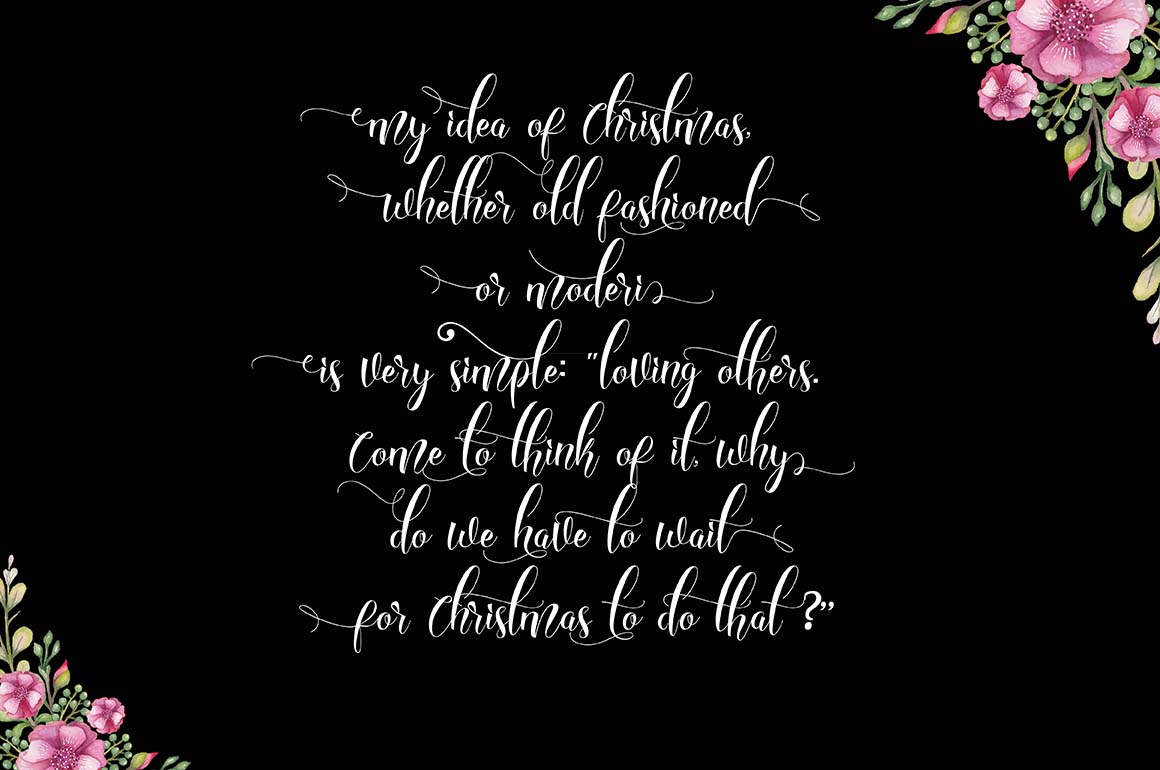 my idea of Christmas,
whether old fashioned
or modern
is very simple: "loving others.
Come to think of it, why
do we have to wait
for Christmas to do that ?”